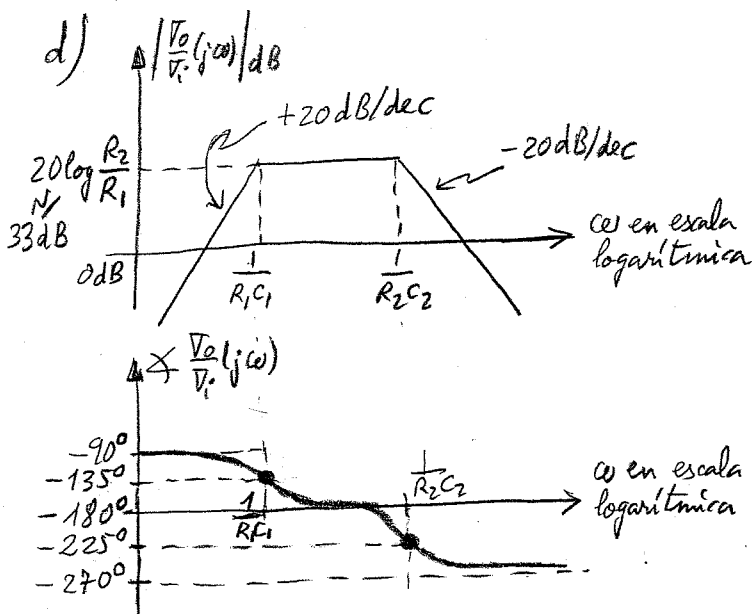 d)
|Vo/Vi (jω)|dB
+20dB/dec
-20dB/dec
20log R2/R1
≈
33dB
0dB
1/R1C1
1/R2C2
ω en escala
logarítmica
∡ Vo/Vi (jω)
-90°
-135°
-180°
-225°
-270°
1/R1C1
1/R2C2
ω en escala
logarítmica